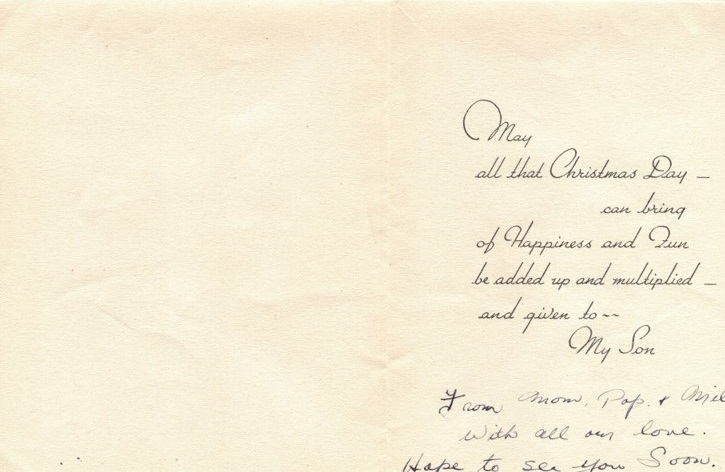 May
all that Christmas Day —
can bring
of Happiness and Fun
be added up and multiplied —
and given to --
My Son
From Mom, Pop. &
With all our love.
Hope to see you Soon.